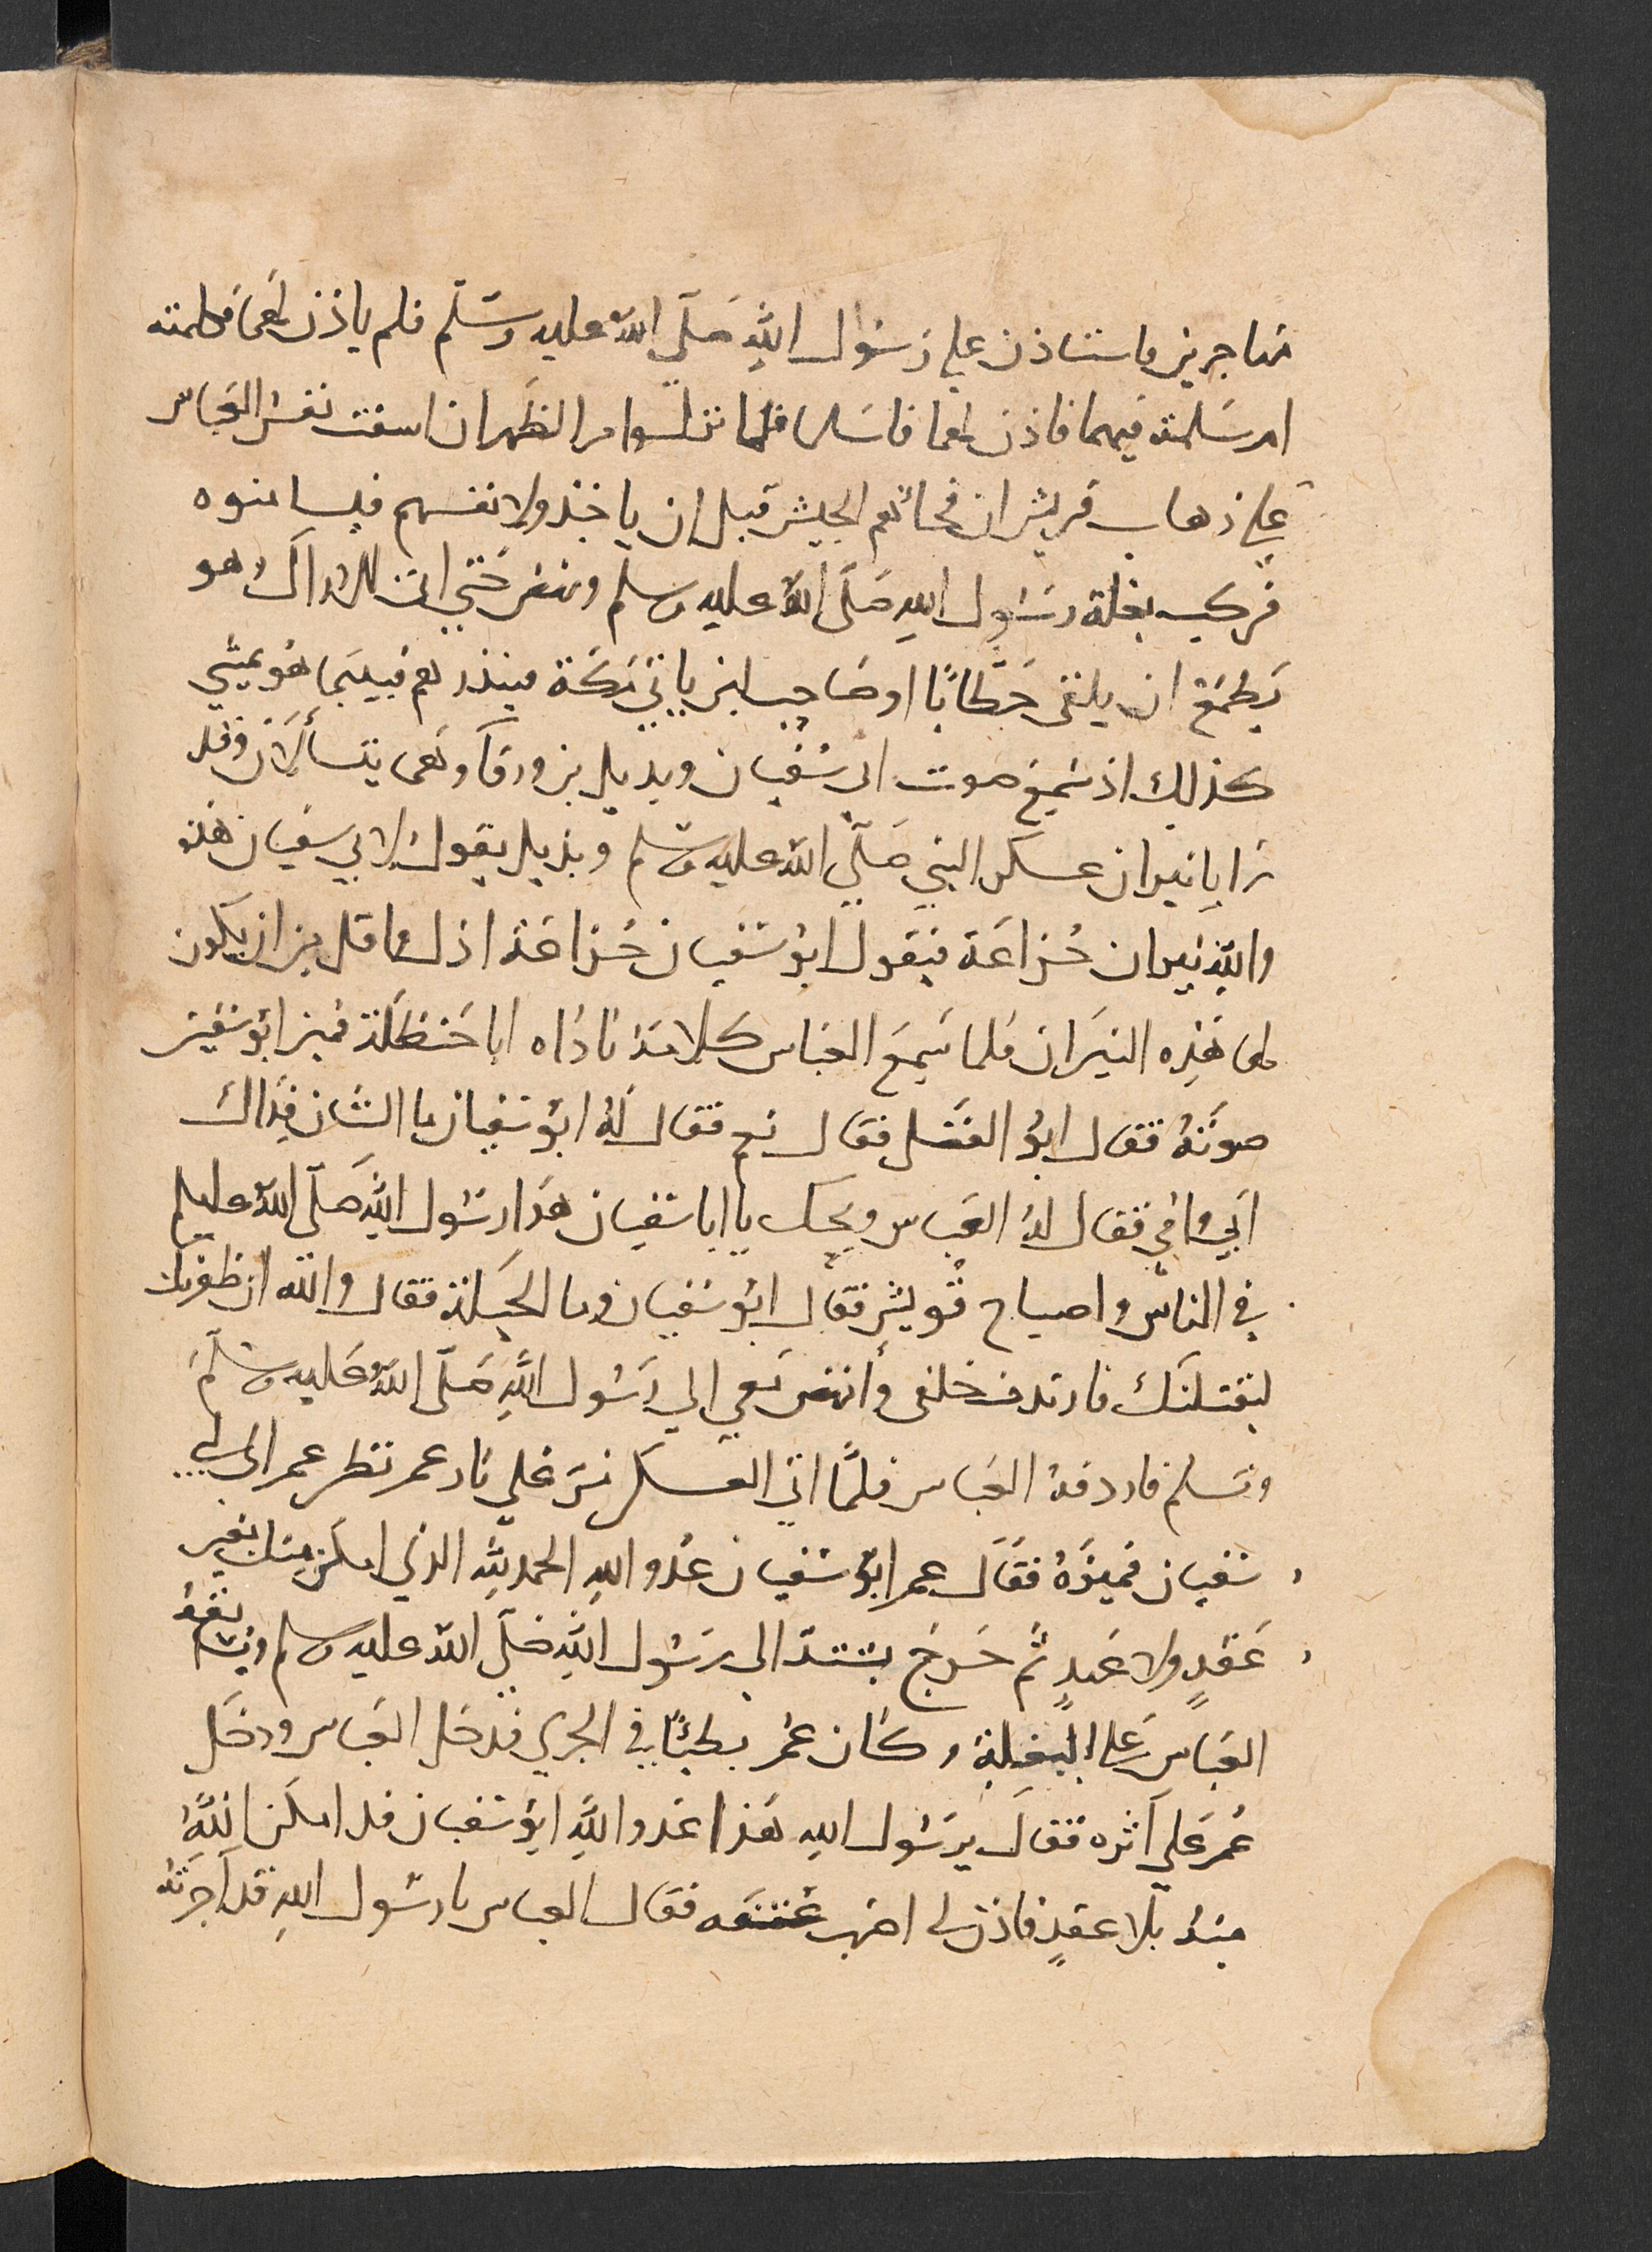 مهاجرين فاستاذن علي رَسُوال اللهِ صَلّي اللهُ عليه وسَلّم فلم ياذن لهَما فكلمته
ام سَلمة فيهما فاذن لهما فاسَلما فلما نزلوا مر الظهران اسفت نفسُ العَباس
علي ذهاب قريش ان فجائهم الجيش قبل ان ياخذولانفسهم فيسامنوه
فركب بغلة رسُول اللهِ صَلّى اللهُ عليه وسلم ونهض حَتي اتى الاراك وهو
يَطمَع ان يلقى حَطابًا او صَاحِب لبن ياتي مَكة فينذرهم فبينما هو يمشي
كذلِك اذ سَمِع صوت ابي سُفيان وبديل بن ورقآ وهَما يتسألَان وقد
رَايا نيران عسكر النبي صَلّي الله عليه وسلم وبديل يقول لابي سفيان هذه
والله نيران خُزاعَة فيقول ابو سُفيان خُزاعَة اذل واقل من ان يكون
لها هَذِه النيَران فلما سَمِعَ العباس كلامَهُ نادَاه ابا حَنظلَة فميز ابو سفين
صوتَهُ فقال ابُو الفَضل فقال نعم فقال لهُ ابُو سُفيان ما الشان فِدَاكَ
ابَي وامي فقال لهُ العَباس ويحك يا ابا سُفيان هَذا رسُول اللهِ صَلّى اللهُ عليه وسلم
في الناس واصباح قُريش فقال ابُو سُفيان وما الحيلة فقال والله ان ظفر بك
ليقتلنَّك فارتدف خلفى وأنهض مَعي الي رَسُول اللهِ صَلّى اللهُ عَليه وسلّمَ
وتسلم فاردفهُ العَباس فلمَّا اتي العَسكر مَرَّ عَلي نار عمر نظر عمر الى ابي
سُفيان فميزَهُ فقَال عمر ابُو سُفيان عَدُو اللهِ الحمد للهِ الذي امكن منك بغير
عَقدٍ ولا عَهدٍ ثُم خَرجَ يشتدّ الى رسُول اللهِ صَلّى اللهُ عليه وسلم وسبقهُ
العَباس عَلى البغلة وكان عُمر بطيئًا في الجري فدخل العَباس ودخَل
عُمر عَلي آثره فقال يرَسُول اللهِ هَذا عَدو اللهِ ابُو سُفيان قد امكن اللّهُ
منهُ بلا عقدٍ فاذن لى اضرب عُنقه فقال العباس يا رسُول اللهِ قد آجرتهُ